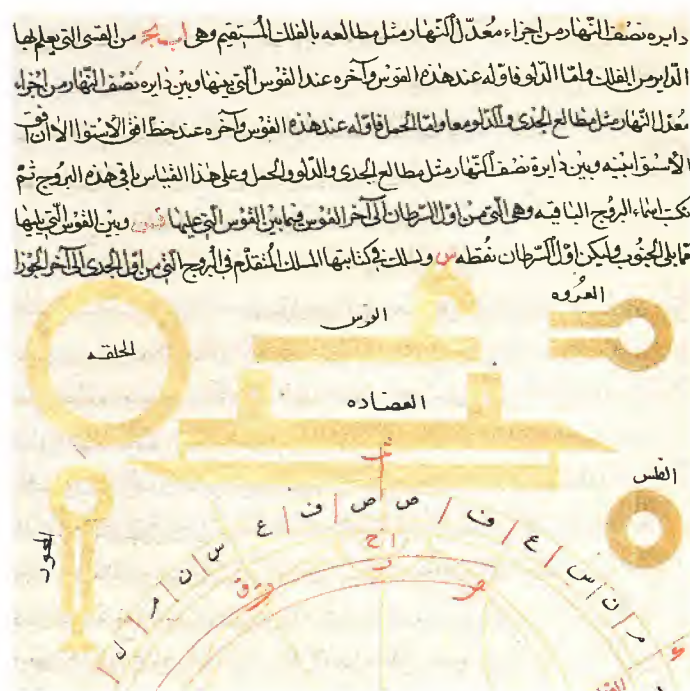 دايره نصف النهار من اجزاء معدل النهار مثل مطالعه بالفلك المستقيم وهى اب بج من القسى التى يعلم لها
الداير من الفلك وامّا الدلو فاوله عند هذه القوس وآخره عند القوس التى بينها وبين دايره نصف النهار من اجزاء
معدل النهار مثل مطالع الجدى والدلو معا وامّا الحمل فاوله عند هذه القوس وآخره عند خط افق الاستوا لان افق
الاستوا بينه وبين دايرة نصف النهار مثل مطالع الجدى والدلو والحمل وعلى هذا القياس باقى هذه البروج ثم
نكتب اسماء البروج الباقيه وهى التى من اول السرطان الى آخر القوس فيما بين القوس التى عليها وبين القوس التى يليها
مما يلى الجنوب وليكن اول السرطان نقطه س ونسلك فى كتابتها المسلك المتقدم فى البروج التى من اول الجدى الى آخر الجوزا
العروه
الفرس
الحلقه
العضاده
الفلس
المحور
ل م ن س ع ف ص ص ف ع س ن م